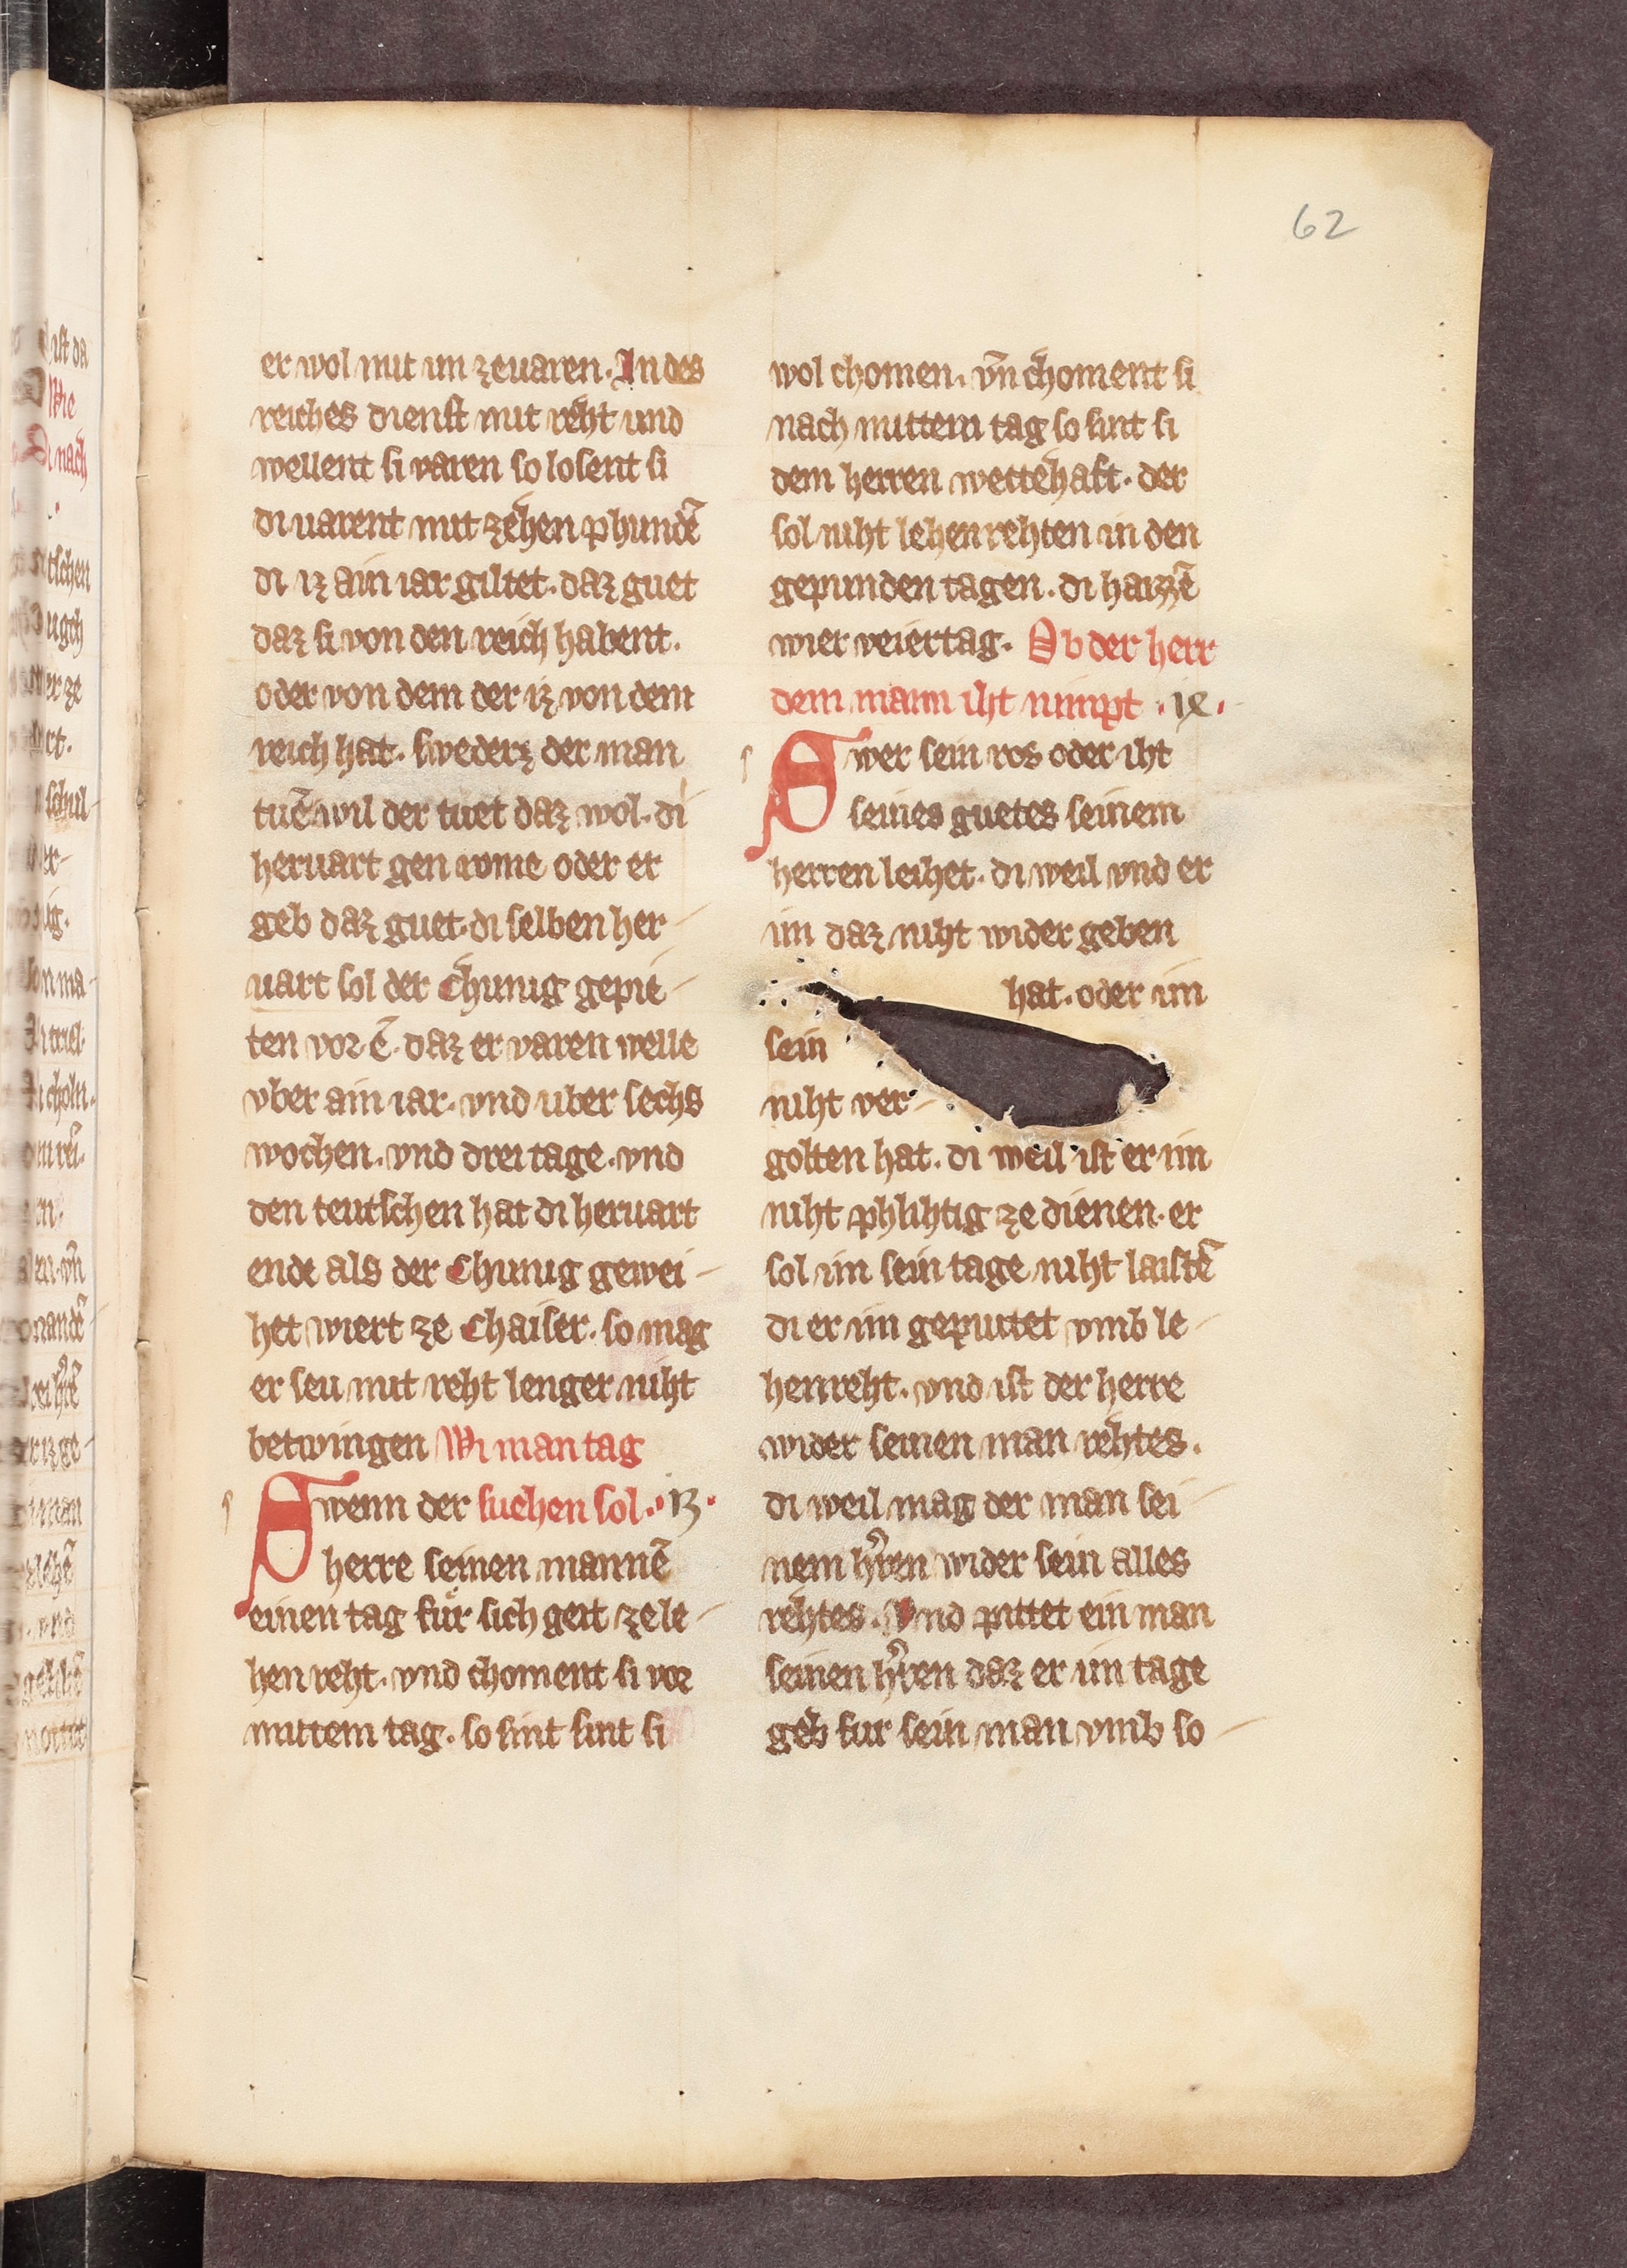 62
er wol mit im zeuaren. In des
reiches dienst mit reht und
wellent si varen so losent si
di uarent mit zehen phundē
di iz ain iar giltet. daz guet
daz si von den reich habent.
oder von dem der iz von dem
reich hat. swederz der man
tuē wil der tuet daz wol. di
heruart gen rome oder er
geb daz guet. di selben her-
uart sol der Chunig gepie-
ten vor ē. daz er varen welle
vber ain iar. vnd uber sechs
wochen. vnd drei tage. vnd
den teutschen hat di heruart
ende als der Chunig gewei-
het wiert ze Chaiser. so mag
er seu mit reht lenger niht
betwingen Wi man tag
Swenn der suehen sol.
herre seinen mannē
einen tag fur sich geit ze le-
hen reht. vnd choment si vor
mittem tag. so sint sint si
wol chomen. vn̄ choment si
nach mittem tag so sint si
dem herren wettehaft. der
sol niht lehenrehten in den
gepunden tagen. di haizzē
wier veiertag. Ob der herr
dem mann iht nimpt . ix.
Swer sein ros oder iht
seines guetes seinem
herren leihet. di weil vnd er
im daz niht wider geben
hat. oder im
sein
niht ver-
golten hat. di weil ist er im
niht phlihtig ze dienen. er
sol im sein tage niht laistē
di er im gepiutet vmb le-
henreht. vnd ist der herre
wider seinen man rehtes.
di weil mag der man sei-
nem hˀren wider sein alles
rehtes. Vnd pittet ein man
seinen hˀren daz er im tage
geb fur sein man vmb so-